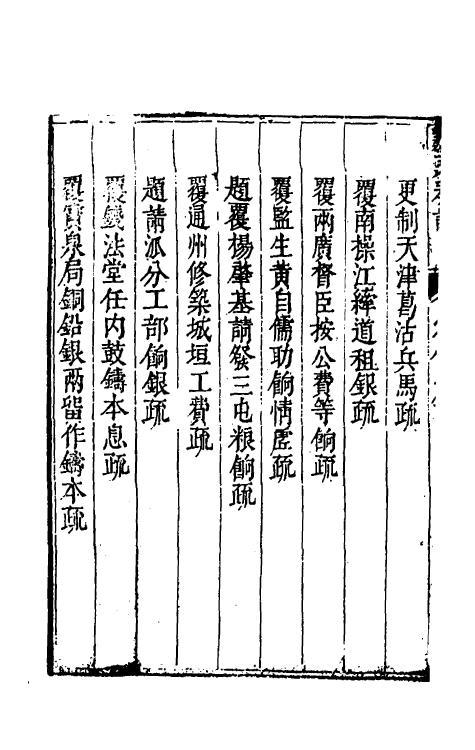 更制天津葛沽兵馬疏
覆南操江絳道租銀疏
覆兩廣督臣按公費等餉疏
覆監生黄自儒助餉情虗疏
題覆楊肇基請發三屯粮餉疏
覆通州修築城垣工費疏
題請派分工部餉銀疏
覆錢法堂任内鼓鑄本息疏
覆寳泉局銅鉛銀兩留作鑄本疏